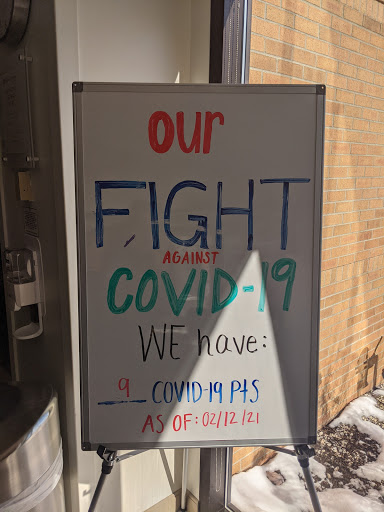 OUR
FIGHT
AGAINST
COVID-19
WE have:
9 COVID-19 PtS
AS OF: 02/12/21